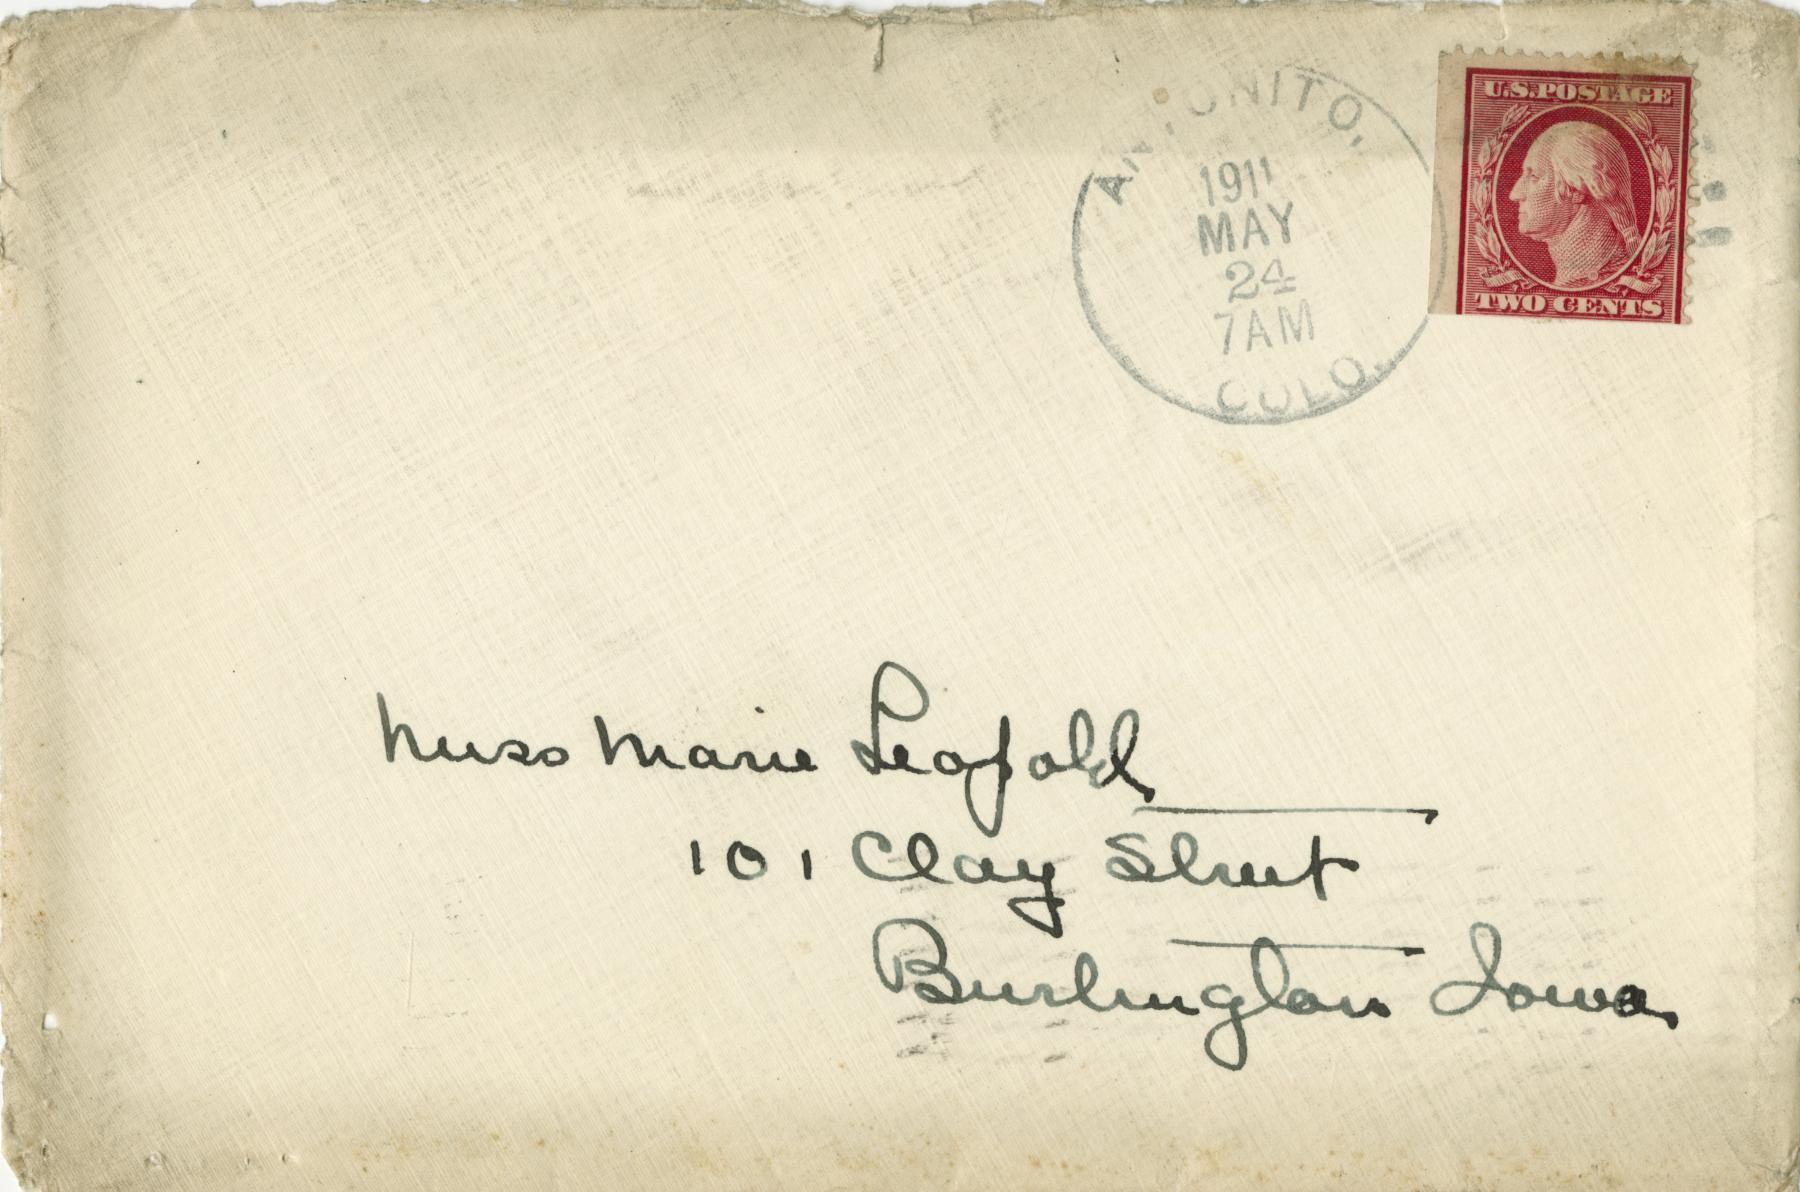 ANTONITO,
1911
MAY
24
7AM
COLO.
U.S.POSTAGE
TWO CENTS
Miss Marie Leopold
101 Clay Street
Burlington Iowa.